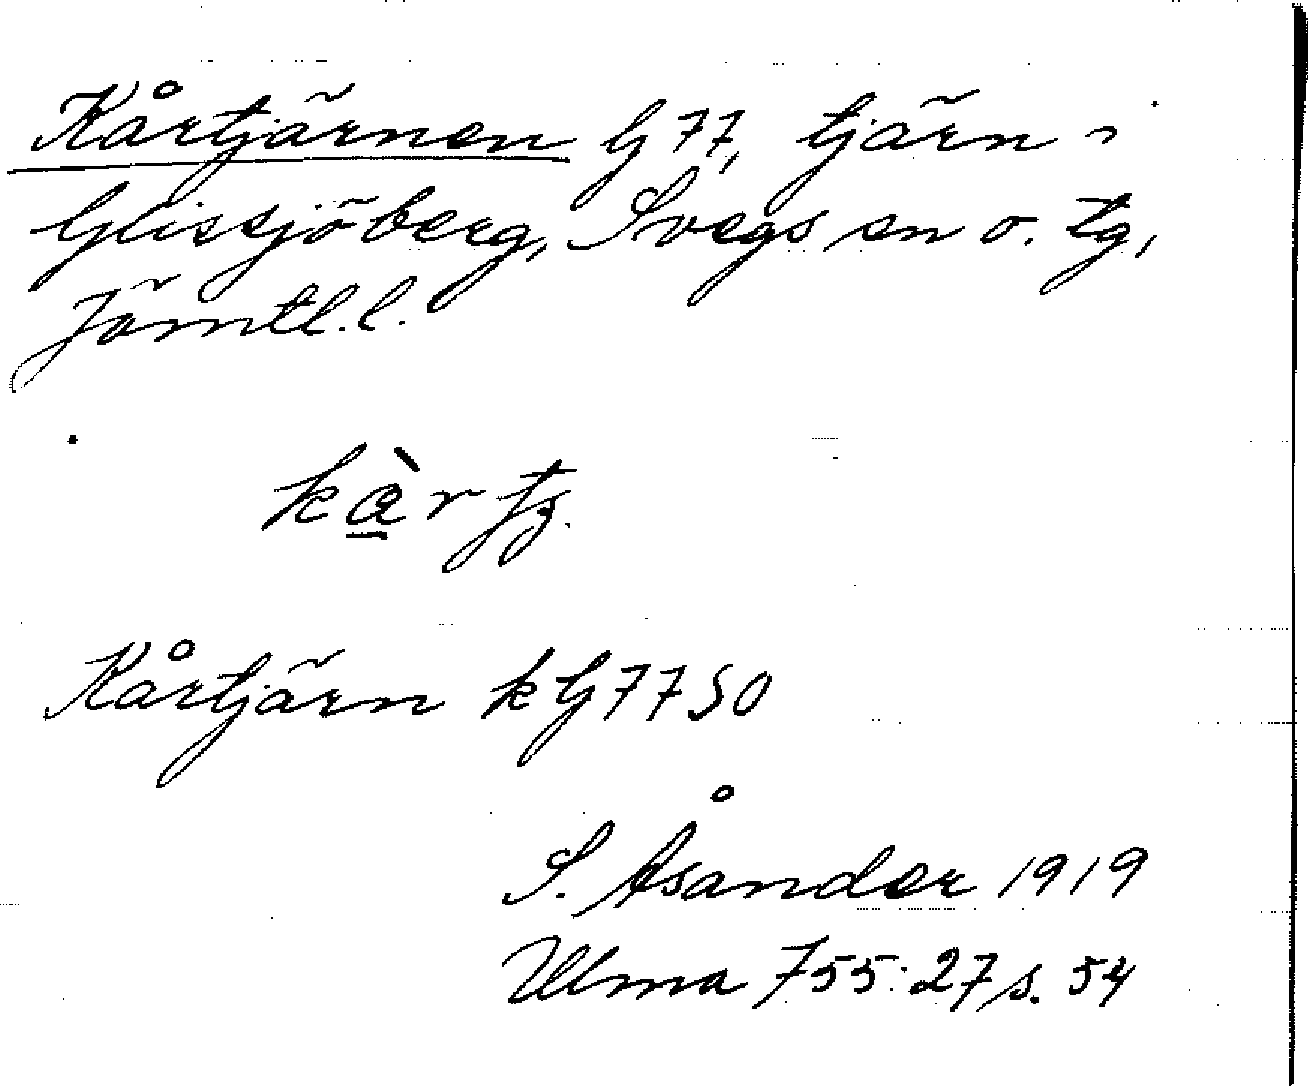 Kårtjärnen G 77, tjärn i
Glissjöberg, Svegs sn o. tg,
Jämtl. l.
kàr tj.
Kårtjärn k G 77 SO
S. Åsander 1919
Ulma 755:27 s. 54